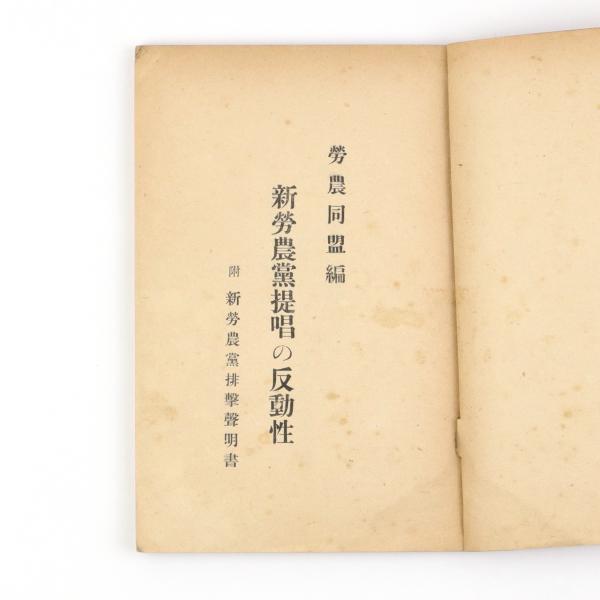 勞農同盟編
新勞農黨提唱の反動性
附 新勞農黨排擊聲明書